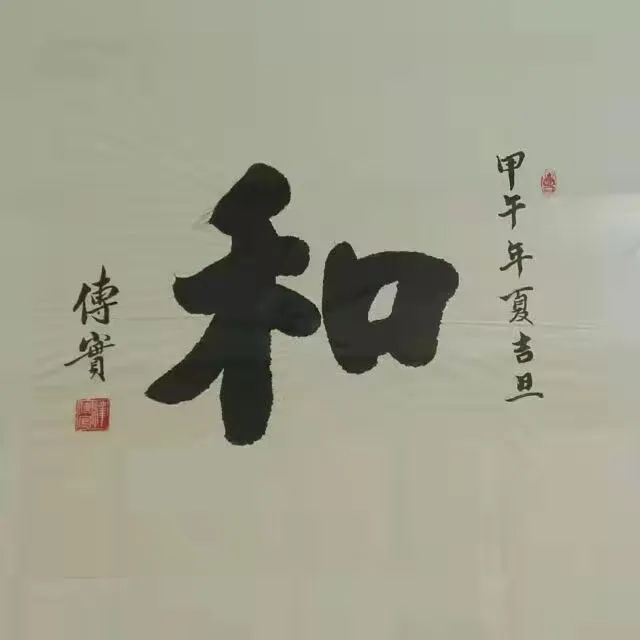 甲午年夏吉旦
和
傳實